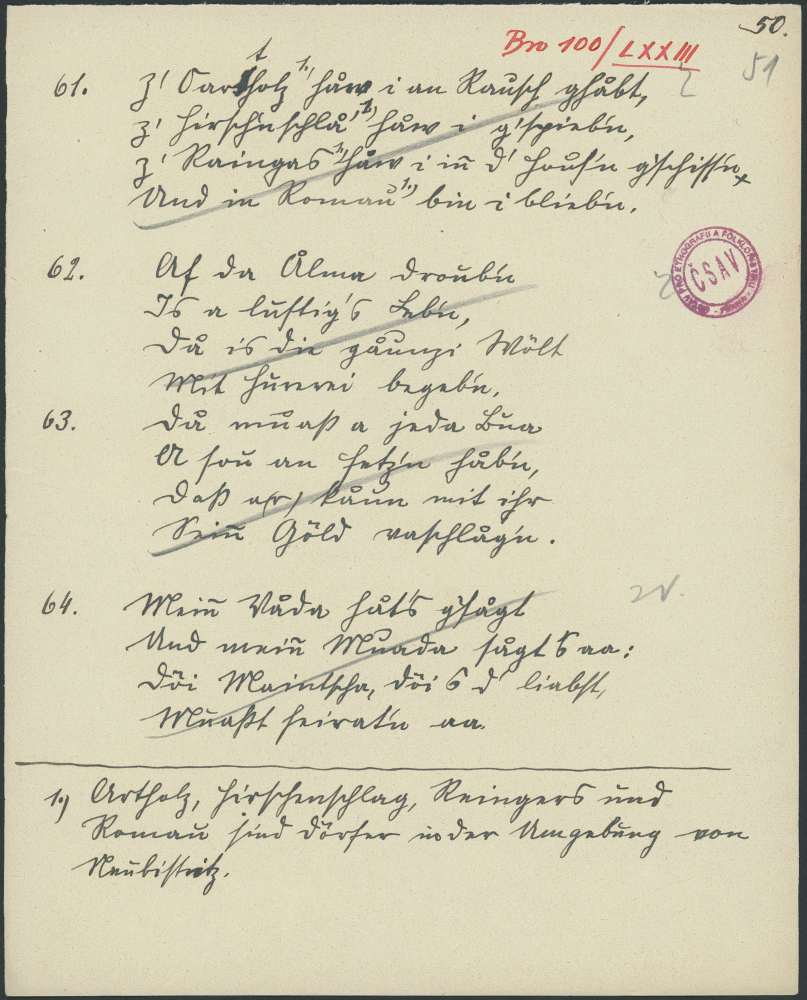 50.
Bro 100/LXXIII
51
61. z' Oartholz 1.) håw i an Rausch ghåbt,
z' Hirschnschlå 1.) håw i g'spieb'n,
z' Raingas 1.) håw i in̄ d' Hous'n g'schiss'n
Und in Romau 1.) bin i blieb'n.
62. Af da Ålma droub'n
Is a lustig's Leb'n,
Då is die gåunzi Wölt
Mit Hurerei begeb'n.
63. Då muaß a jeda Bua
A sou an Fetz'n håb'n,
Daß a(r) kåun mit ihr
Sein̄ Göld vaschlåg'n.
64. Mein̄ Våda håt's g'sågt
Und mein̄ Muada sågt's aa:
Döi Maintscha, döi's d' liabst,
Muaßt heirat'n aa.
1.) Artholz, Hirschenschlag, Reingers und
Romau sind Dörfer in der Umgebung von
Neubistritz.
ČSAV